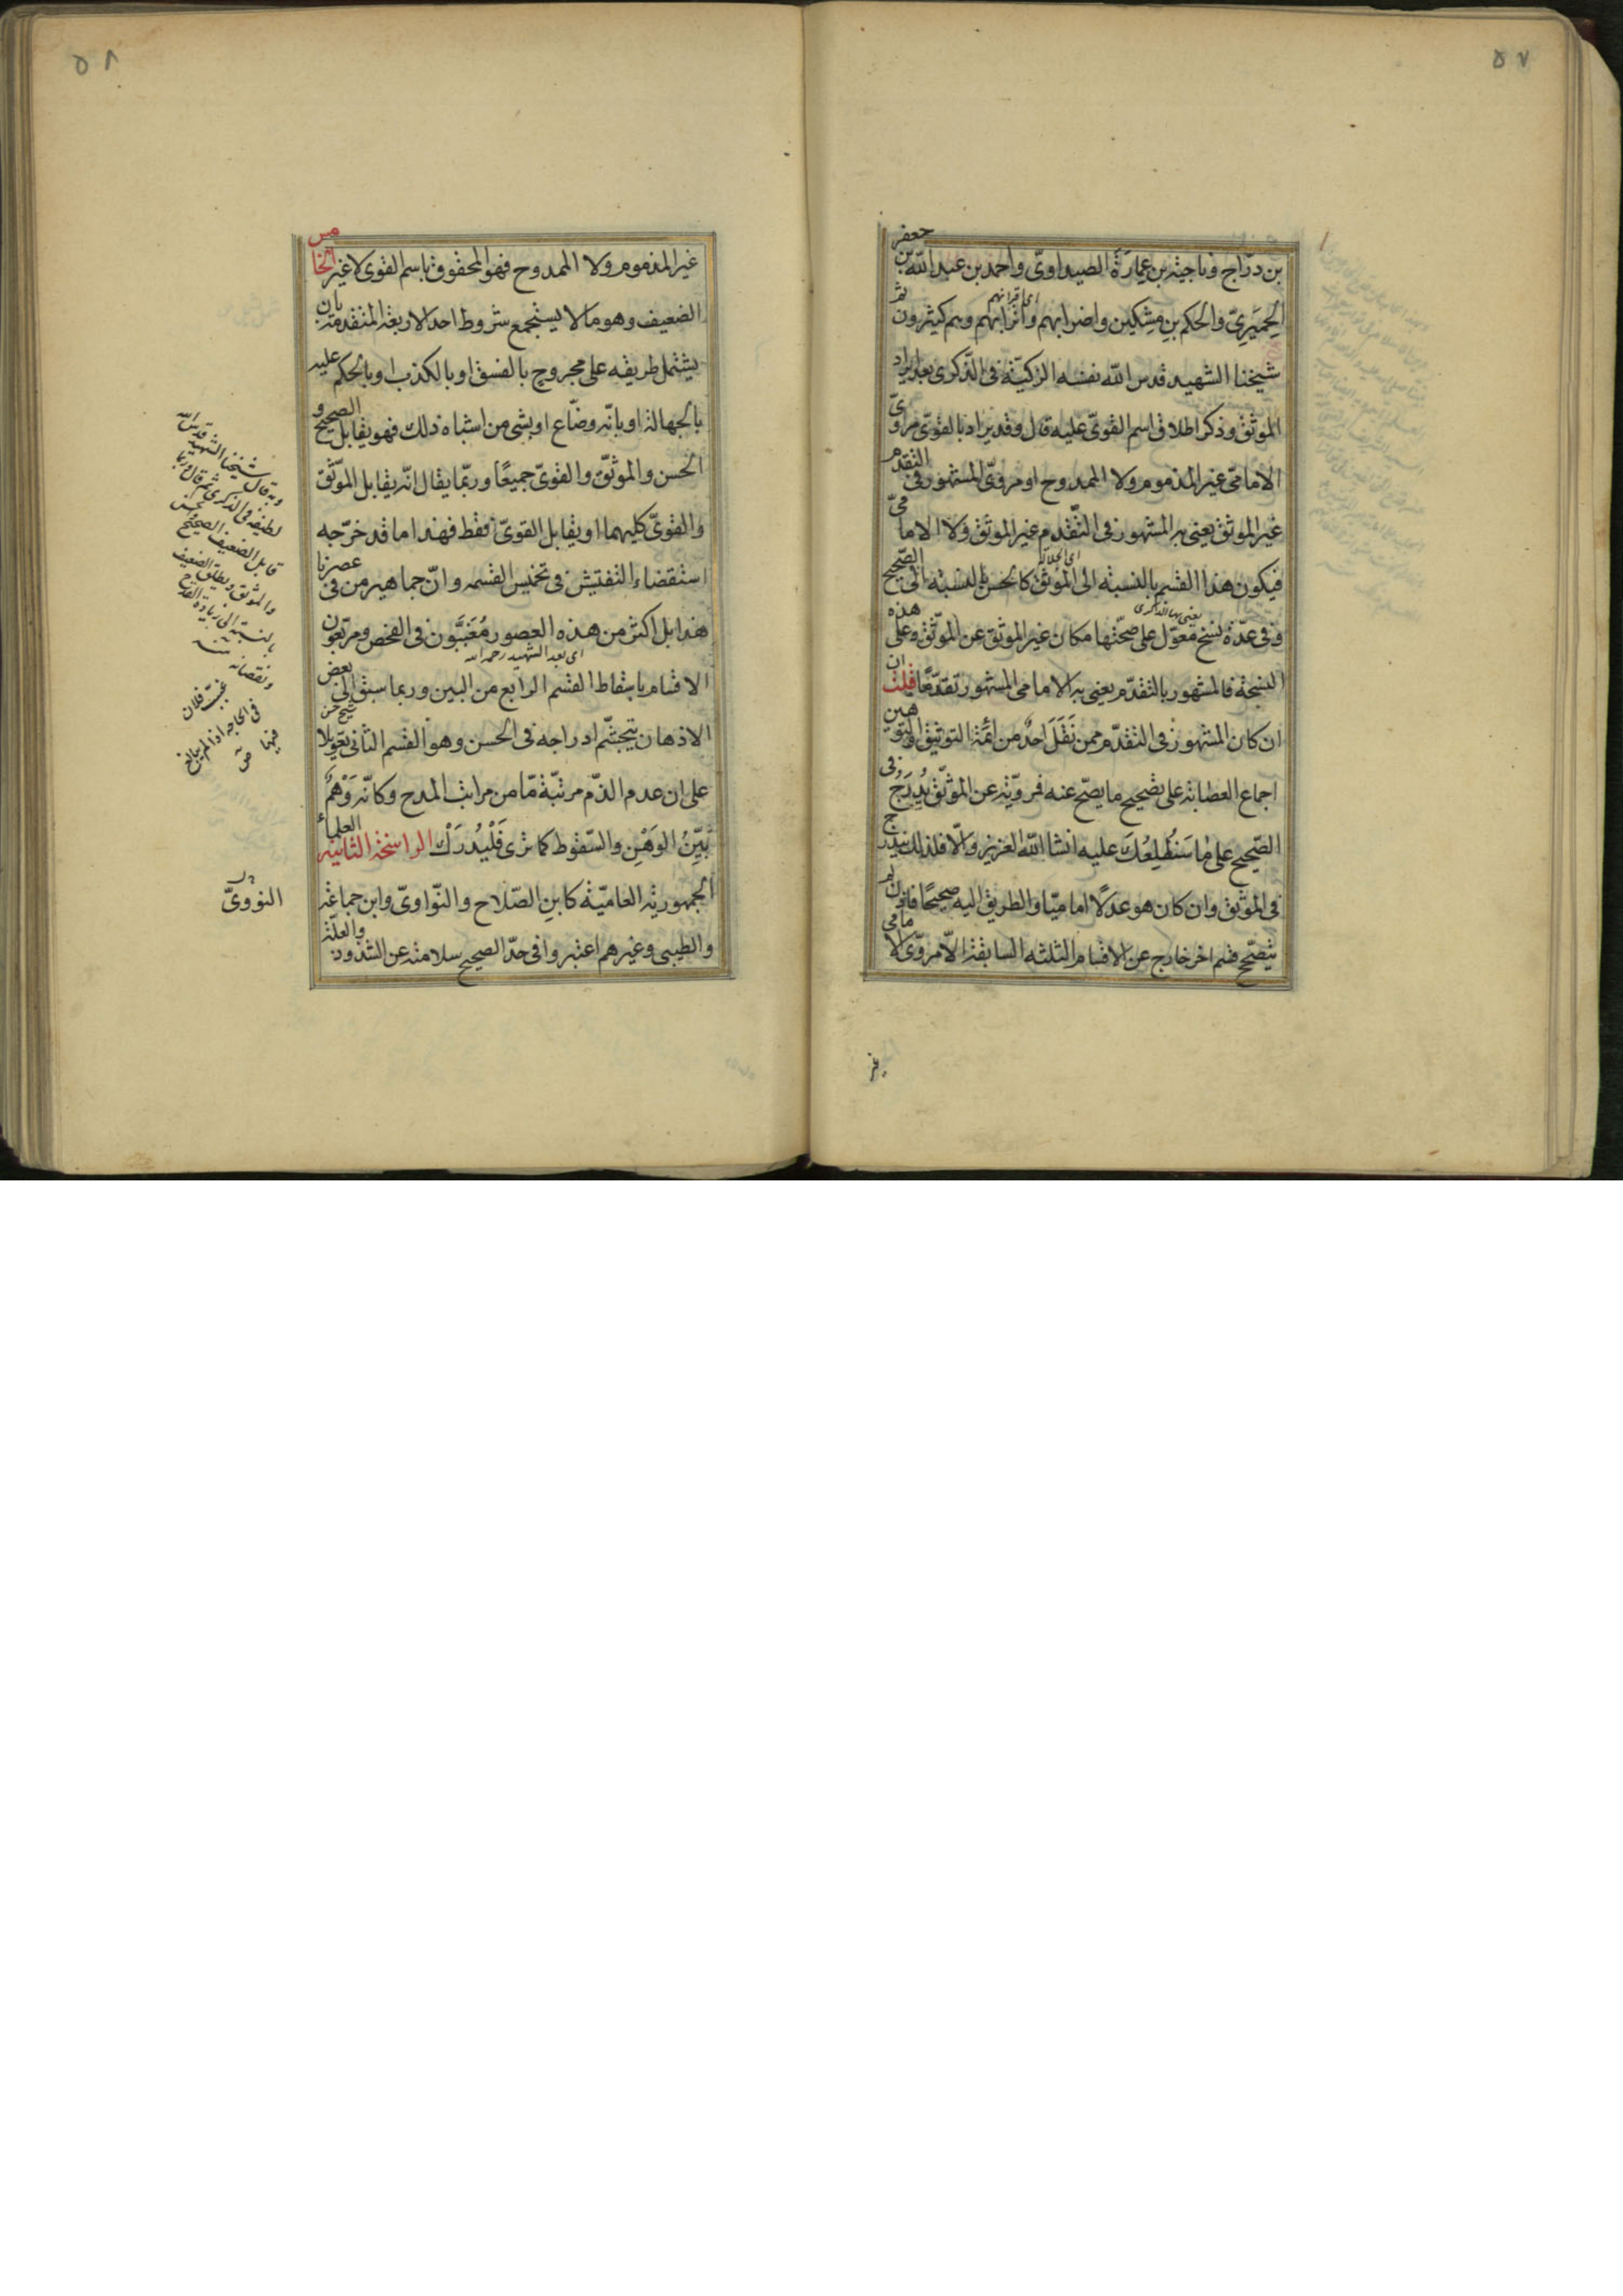 ٥٧
بن درّاج وناجية بن عمارة الصيداوىّ واحمد بن عبد الله بن جعفر
الحِميَرِىّ والحكم بن مِسْكين واضرابهم واترابهم وهم كثيرون ثم
اى اقرانهم
شيخنا الشهيد قدس الله نفسه الزكيّة فى الذّكرى بعد ايراد
الموثّق وذكر اطلاق اسم القوىّ عليه قال وقد يراد بالقوىّ مروىّ
الامامىّ غير المذموم ولا الممدوح او مروىّ المشهور فى التقدم
غير الموثق يعنى به المشهور فى التّقدم غير الموثق ولا الامامىّ
فيكون هذا القسم بالنسبة الى الموثق كالحسن بالنسبة الى الصّحيح
وفى عدّة نسخ معوّل على صحّتها مكان غير الموثق عن الموثّق وعلى هذه
يعنى بها الذكرى
النسخة فالمشهور بالتقدّم يعنى به الامامى المشهور تقدّمًا قلت ان
ان كان المشهور فى التقدّم ممن نَقَلَ احدٌ من ائمّة التوثيق والتوهين
اجماع العصابة على تصحيح ما يصحّ عنه فمرويّه عن الموثّق يُدرَج فى
الصّحيح على ما سَنُطْلِعُكَ عليه انشا الله العزيز والّا فلذلك يندرج
فى الموثق وان كان هو عدلًا اماميّا والطريق اليه صحيحًا فاذن لم
يتصحّح قسم اخر خارج عن الاقسام الثلثه السابقة الّا مروىّ الامامى
غير
٥٨
غير المذموم ولا الممدوح فهو المحقوق باسم القوى لا غير الخامس
الضعيف وهو ما لا يستجمع شروط احد الاربعة المتقدمة بان
يشتمل طريقه على مجروح بالفسق او بالكذب او بالحكم عليه
بالجهالة او بانّه وضّاع او بشى من اشباه ذلك فهو يقابل الصحيح و
الحسن والموثّق والقوىّ جميعًا وربّما يقال انّه يقابل الموّثق
والقوىّ كليهما او يقابل القوىّ فقط فهذا ما قد خرّجه
استقضاء التفتيش فى تخميس القسمه وانّ جماهير من فى عصرنا
هذا بل اكثر من هذه العصور مُغَبَّون فى الفحص ومربّعون
اى بعد الشهيد رحمه الله
الاقسام باسقاط القسم الرابع من البين وربما سبق الى بعض
الاذهان تجشّم ادراجه فى الحسن وهو القسم الثانى تعويلا
شيخ حسن
على ان عدم الذّم مرتبّة مّا من مراتب المدح وكانّه وَهْمٌ
بَيِّنُ الوَهْنِ والسّقوط كما ترى فَلْيُدرَكْ الراسخة الثانية العلماء
الجمهورية العاميّة كابنِ الصّلاح والنّواوىّ وابن جماعة
والطيبى وغيرهم اعتبروا فى حدّ الصحيح سلامته عن الشذوذ والعلّة
وبه قال شيخنا الشهيد قدس الله
لطيفه فى الذكرى ثم قال وربما
قابل الضعيف الصحيح والحسن
والموثق ويطلق الضعيف
بالنسبة الى زيادة القدح
ونقصانه منه
فيهما
النوَوىّ